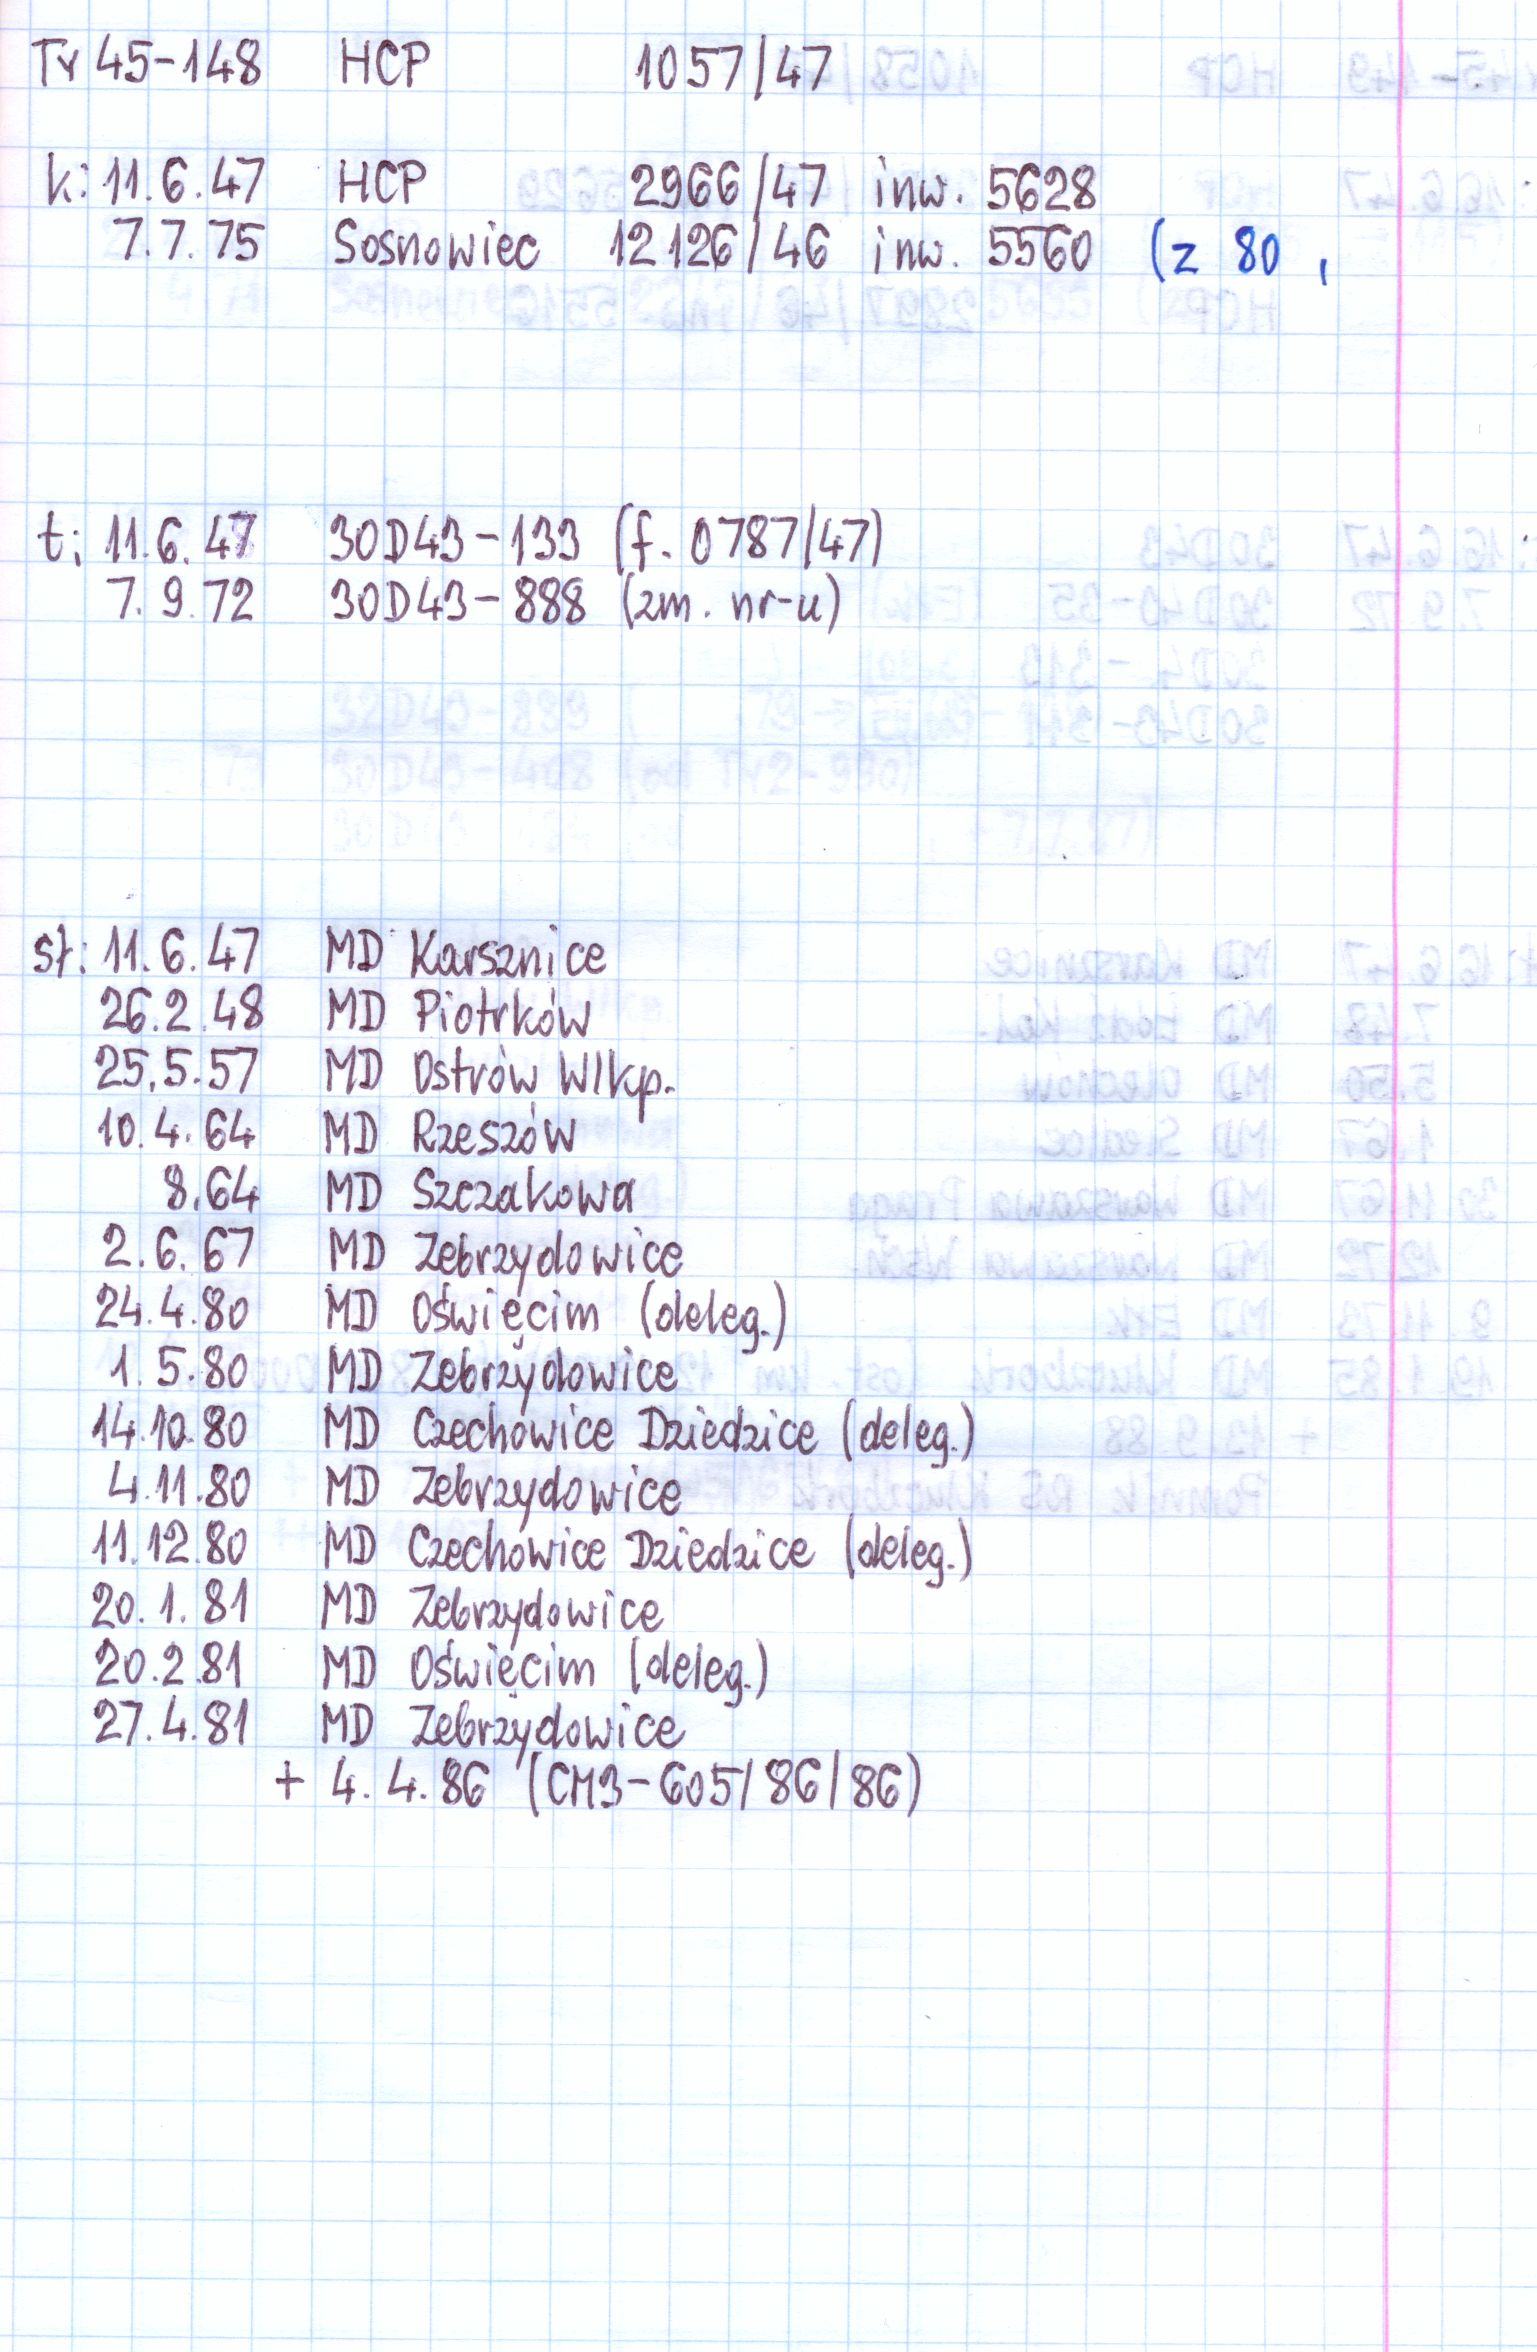 Tr 45-148 HCP 1057/47
k: 11.6.47 HCP 2966/47 inw. 5628
7.7.75 Sosnowiec 12126/46 inw. 5560 (z 80 ,
t: 11.6.47 30D43-133 (f. 0787/47)
7.9.72 30D43-888 (zm. nr-u)
sł: 11.6.47 MD Karsznice
26.2.48 MD Piotrków
25.5.57 MD Ostrów Wlkp.
10.4.64 MD Rzeszów
8.64 MD Szczakowa
2.6.67 MD Zebrzydowice
24.4.80 MD Oświęcim (deleg.)
1.5.80 MD Zebrzydowice
14.10.80 MD Czechowice Dziedzice (deleg.)
4.11.80 MD Zebrzydowice
11.12.80 MD Czechowice Dziedzice (deleg.)
20.1.81 MD Zebrzydowice
20.2.81 MD Oświęcim (deleg.)
27.4.81 MD Zebrzydowice
+ 4.4.86 (CM3-605/86/86)